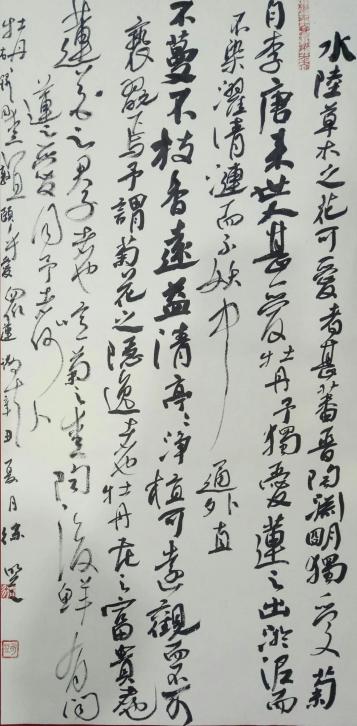 水陸草木之花可愛者甚蕃晋陶淵明獨愛菊
自李唐来世人甚愛牡丹予獨愛蓮之出淤泥而
不染濯清漣而不妖中通外直
不蔓不枝香遠益清亭〻净植可遠觀而不可
褻翫焉予謂菊花之隐逸者也牡丹花之富貴者
蓮花之君子者也噫菊之愛陶後鮮有聞
蓮之愛同予者何人
牡丹 頤 蓮 辛丑夏月徐